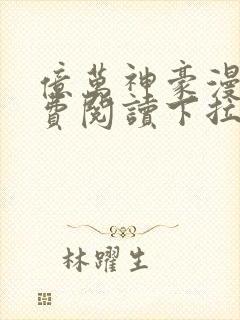 億萬神豪漫
費閱讀下拉
林躍生